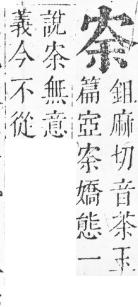 鉏麻切音茶玉
篇㝞嬌態一
說無意
義今不從